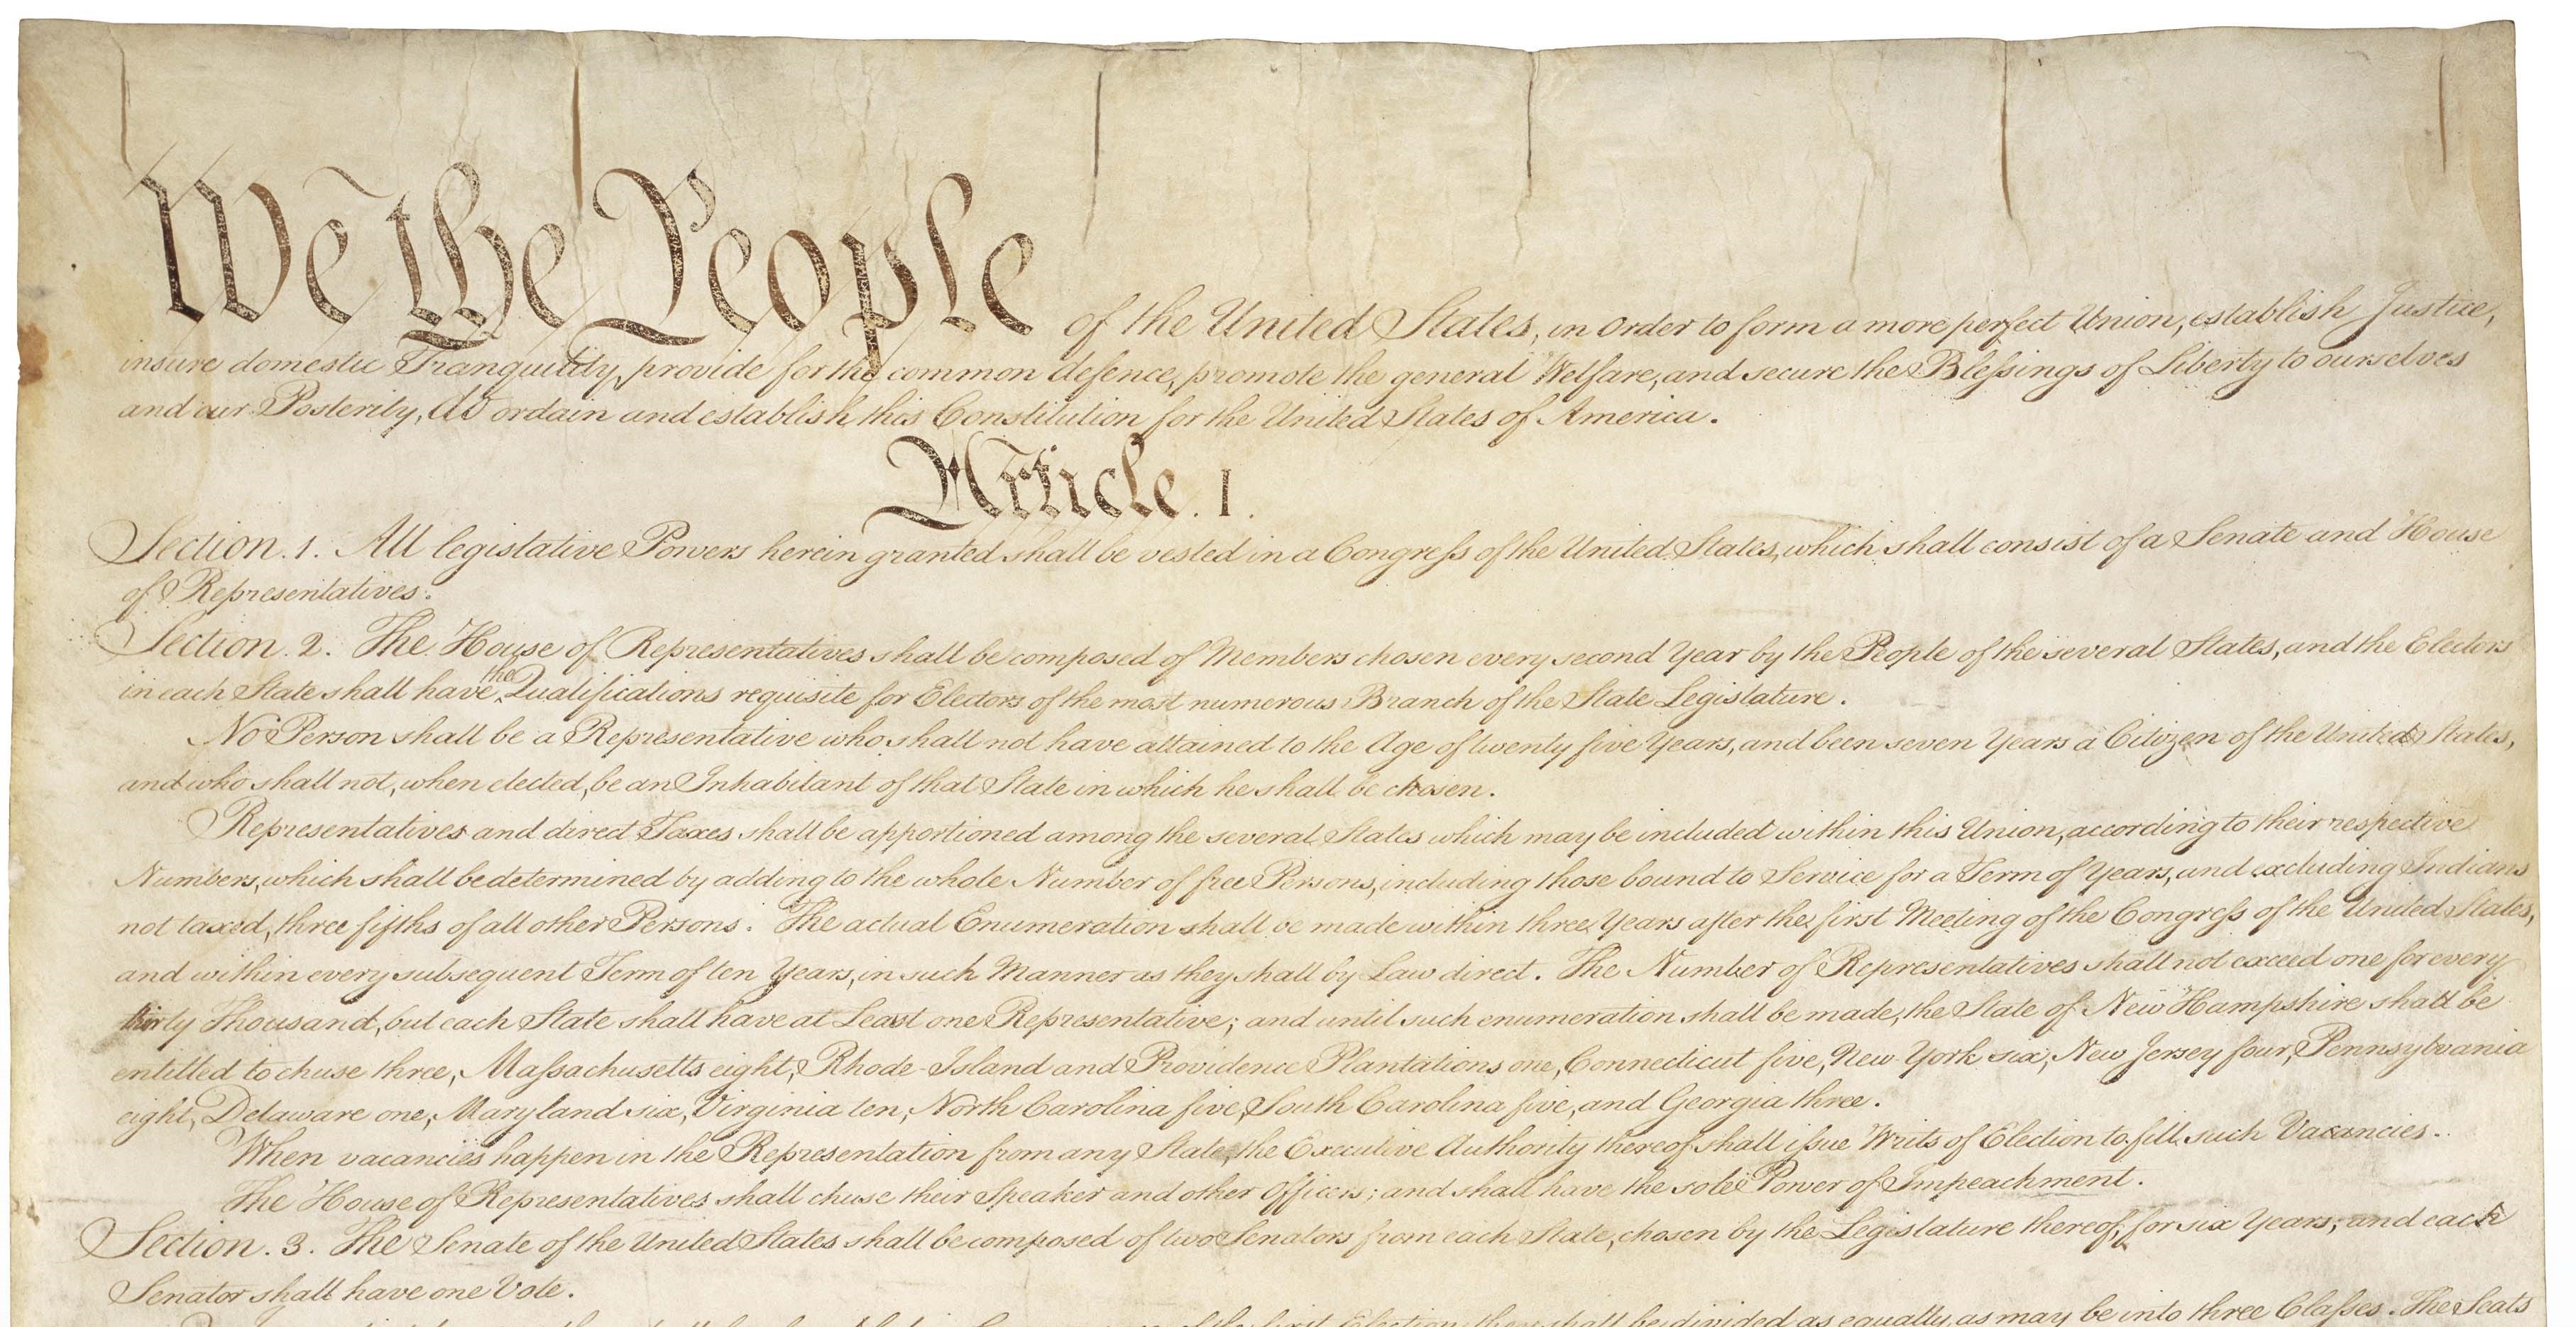 We the People of the United States, in Order to form a more perfect Union, establish Justice,
insure domestic Tranquility, provide for the common defence, promote the general Welfare, and secure the Blessings of Liberty to ourselves
and our Posterity, do ordain and establish this Constitution for the United States of America.
Article. I.
Section. 1. All legislative Powers herein granted shall be vested in a Congress of the United States, which shall consist of a Senate and House
of Representatives.
Section. 2. The House of Representatives shall be composed of Members chosen every second Year by the People of the several States, and the Electors
in each State shall have the Qualifications requisite for Electors of the most numerous Branch of the State Legislature.
No Person shall be a Representative who shall not have attained to the Age of twenty five Years, and been seven Years a Citizen of the United States,
and who shall not, when elected, be an Inhabitant of that State in which he shall be chosen.
Representatives and direct Taxes shall be apportioned among the several States which may be included within this Union, according to their respective
Numbers, which shall be determined by adding to the whole Number of free Persons, including those bound to Service for a Term of Years, and excluding Indians
not taxed, three fifths of all other Persons. The actual Enumeration shall be made within three Years after the first Meeting of the Congress of the United States,
and within every subsequent Term of ten Years, in such Manner as they shall by Law direct. The Number of Representatives shall not exceed one for every
thirty Thousand, but each State shall have at Least one Representative; and until such enumeration shall be made, the State of New Hampshire shall be
entitled to chuse three, Massachusetts eight, Rhode-Island and Providence Plantations one, Connecticut five, New-York six, New Jersey four, Pennsylvania
eight, Delaware one, Maryland six, Virginia ten, North Carolina five, South Carolina five, and Georgia three.
When vacancies happen in the Representation from any State, the Executive Authority thereof shall issue Writs of Election to fill such Vacancies.
The House of Representatives shall chuse their Speaker and other Officers; and shall have the sole Power of Impeachment.
Section. 3. The Senate of the United States shall be composed of two Senators from each State, chosen by the Legislature thereof, for six Years; and each
Senator shall have one Vote.
of the first Election, they shall be divided as equally as may be into three Classes. The Seats